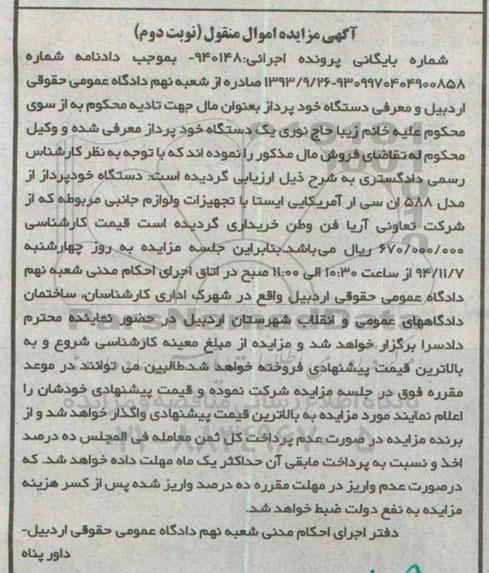 آگهی مزایده اموال منقول (نوبت دوم)
شماره بایگانی پرونده اجرائی: ۹۴۰۱۴۸- بموجب دادنامه شماره
۹۳۰۹۹۷۰۴۰۴۹۰۰۸۵۸-۱۳۹۳/۹/۲۶ صادره از شعبه نهم دادگاه عمومی حقوقی
اردبیل و معرفی دستگاه خود پرداز بعنوان مال جهت تادیه محکوم به از سوی
محکوم علیه خانم زیبا حاج نوری یک دستگاه خود پرداز معرفی شده و وکیل
محکوم له تقاضای فروش مال مذکور را نموده اند که با توجه به نظر کارشناس
رسمی دادگستری به شرح ذیل ارزیابی گردیده است: دستگاه خودپرداز از
مدل ۵۸۸ ان سی ار آمریکایی ایستا با تجهیزات ولوازم جانبی مربوطه که از
شرکت تعاونی آریا فن وطن خریداری گردیده است قیمت کارشناسی
۶۷۰/۰۰۰/۰۰۰ ریال می‌باشد.بنابراین جلسه مزایده به روز چهارشنبه
۹۴/۱۱/۷ از ساعت ۱۰:۳۰ الی ۱۱:۰۰ صبح در اتاق اجرای احکام مدنی شعبه نهم
دادگاه عمومی حقوقی اردبیل واقع در شهرک اداری کارشناسان، ساختمان
دادگاههای عمومی و انقلاب شهرستان اردبیل در حضور نماینده محترم
دادسرا برگزار خواهد شد و مزایده از مبلغ معینه کارشناسی شروع و به
بالاترین قیمت پیشنهادی فروخته خواهد شد.طالبین می توانند در موعد
مقرره فوق در جلسه مزایده شرکت نموده و قیمت پیشنهادی خودشان را
اعلام نمایند مورد مزایده به بالاترین قیمت پیشنهادی واگذار خواهد شد و از
برنده مزایده در صورت عدم پرداخت کل ثمن معامله فی المجلس ده درصد
اخذ و نسبت به پرداخت مابقی آن حداکثر یک ماه مهلت داده خواهد شد. که
درصورت عدم واریز در مهلت مقرره ده درصد واریز شده پس از کسر هزینه
مزایده به نفع دولت ضبط خواهد شد.
دفتر اجرای احکام مدنی شعبه نهم دادگاه عمومی حقوقی اردبیل-
داور پناه